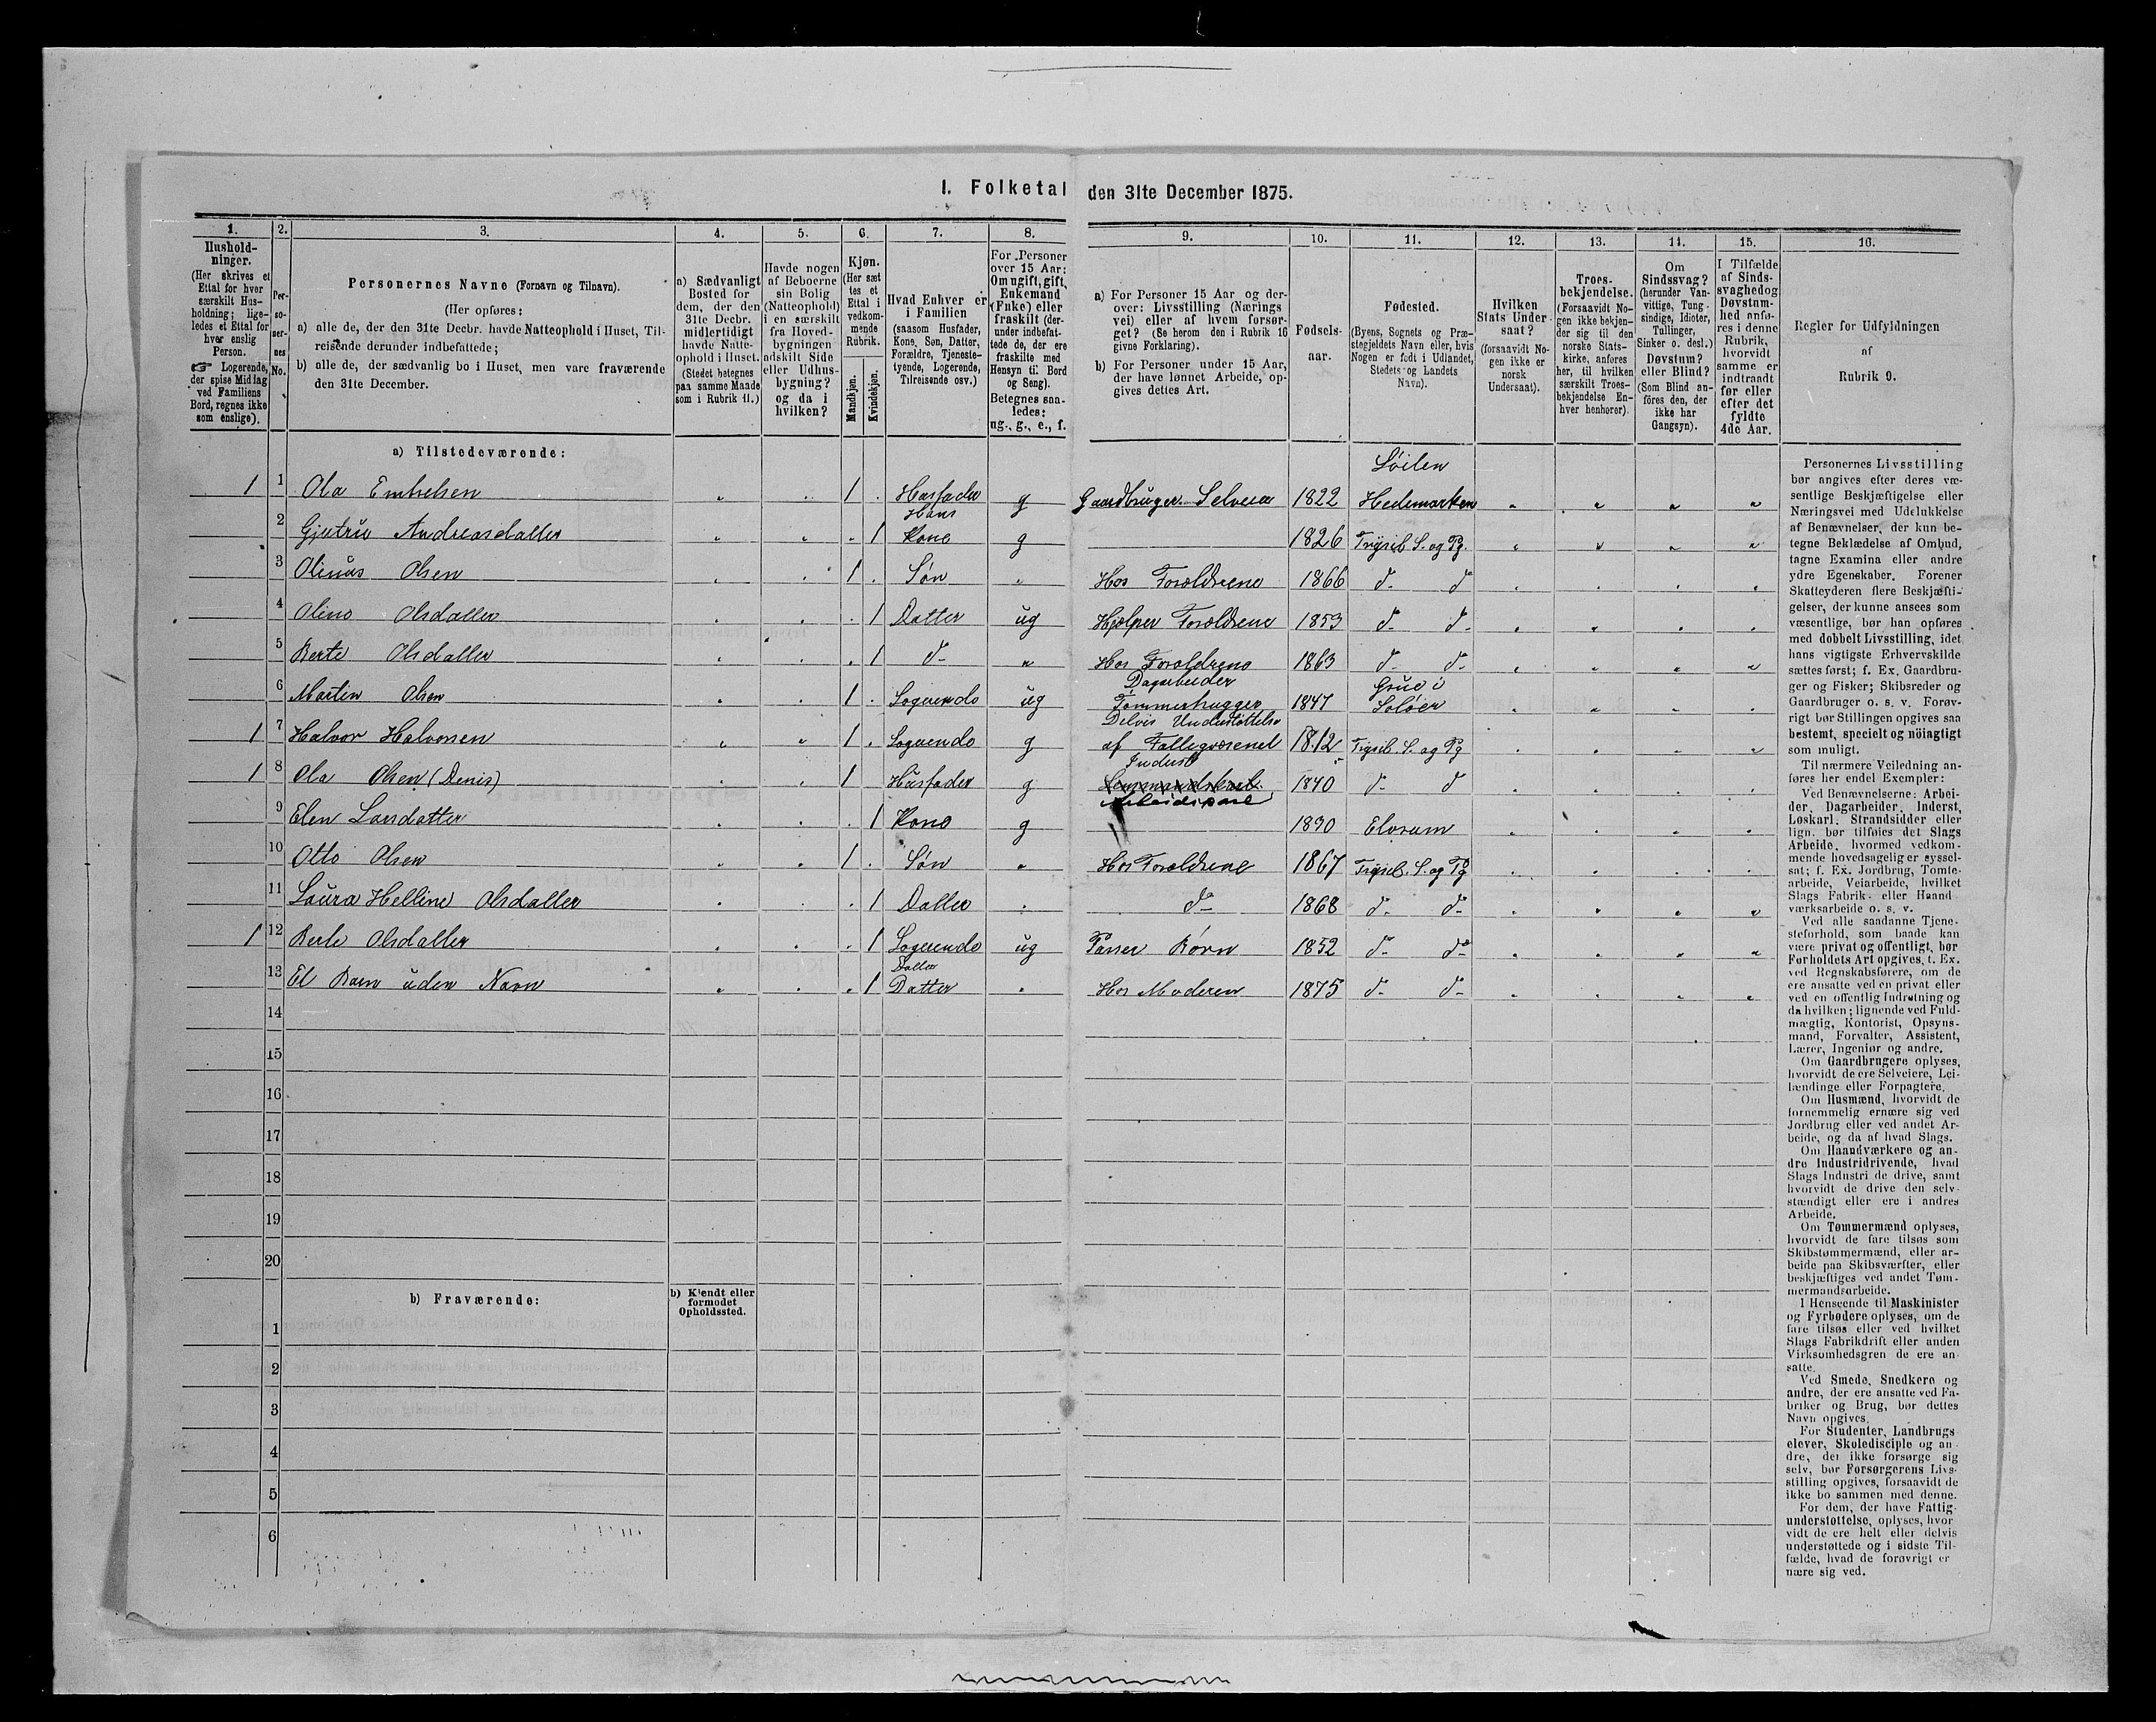 I. Folketal den 31te December 1875.
1.
Hushold-
ninger.
(Her skrives et
Ettal for hver
særskilt Hus-
holdning; lige-
ledes et Ettal for
hver enslig
Person.
Logerende,
der spise Middag
ved Familiens
Bord, regnes ikke
som enslige).
2.
Per-
so-
ner-
nes
No.
3.
Personernes Navne (Fornavn og Tilnavn).
(Her opføres:
a) alle de, der den 31te Decbr. havde Natteophold i Huset, Til-
reisende derunder indbefattede;
b) alle de, der sædvanlig bo i Huset, men vare fraværende
den 31te December.
4.
a) Sædvanligt
Bosted for
dem, der den
31te Decbr.
midlertidigt
havde Natte-
ophold i Huset.
(Stedet betegnes
paa samme Maade
som i Rubrik 11.)
5.
Havde nogen
af Beboerne
sin Bolig
(Natteophold)
i en særskilt
fra Hoved-
bygningen
adskilt Side
eller Udhus-
bygning?
og da i
hvilken?
6.
Kjøn.
(Her sæt
tes et
Ettal i
vedkom-
mende
Rubrik.
Mandkjøn.
Kvindekjøn.
7.
Hvad Enhver er
i Familien
(saasom Husfader,
Kone, Søn, Datter,
Forældre, Tjeneste-
tyende, Logerende,
Tilreisende osv.)
8.
For Personer
over 15 Aar:
Om ugift, gift,
Enkemand
(Enke) eller
fraskilt (der-
under indbefat-
tede de, der ere
fraskilte med
Hensyn til Bord
og Seng).
Betegnes saa-
ledes:
ug., g., e., f.
9.
a) For Personer 15 Aar og der-
over: Livsstilling (Nærings
vei) eller af hvem forsør-
get? (Se herom den i Rubrik 16
givne Forklaring).
b) For Personer under 15 Aar,
der have lønnet Arbeide, op-
gives dettes Art.
10.
Fødsels-
aar.
11.
Fødested.
(Byens, Sognets og Præ-
stegjeldets Navn eller, hvis
Nogen er født i Udlandet,
Stedets og Landets
Navn).
12.
Hvilken
Stats Under-
saat?
(forsaavidt No-
gen ikke er
norsk
Undersaat).
13.
Troes-
bekjendelse.
(Forsaavidt No-
gen ikke bekjen-
der sig til den
norske Stats-
kirke, anføres
her, til hvilken
særskilt Troes-
bekjendelse En-
hver henhører).
14.
Om
Sindssvag?
(herunder Van-
vittige, Tung-
sindige, Idioter,
Tullinger,
Sinker o. desl.)
Døvstum?
eller Blind?
(Som Blind an-
føres den, der
ikke har
Gangsyn).
15.
I Tilfælde
af Sinds-
svaghed og
Døvstum-
hed anfø-
res i denne
Rubrik,
hvorvidt
samme er
indtraadt
før eller
efter det
fyldte
4de Aar.
16.
Regler for Udfyldningen
af
Rubrik 9.
a) Tilstedeværende:
Løiten
1 1 Ola Embretsen 1 Husfader g Gaardbruger Selveier 1822 Hedemarken
Hans
2 Gjertru Andreasdatter 1 Kone g 1826 Trysil S. og Pg.
3 Olinus Olsen 1 Søn Hos Forældrene 1866 d- d
4 Oline Olsdatter 1 Datter ug Hjælper Forældrene 1853 d- d-
5 Berte Olsdatter 1 d- Hos Forældrene 1863 d- d-
Dagarbeider Grue i
6 Martin Olsen 1 Logerende ug Tømmerhugger 1847 Soløer
Delvis Understøttelse
1 7 Halvor Halvorsen 1 Logerende g af Fattigvæsenet 1812 Trysil S. og Pg
Inderst
1 8 Ola Olsen (Denis) 1 Husfader g 1840 d- d
9 Elen Larsdatter 1 Kone g 1830 Elverum
10 Otto Olsen 1 Søn Hos Forældrene 1867 Trysil S. og Pg
11 Laura Helline Olsdatter 1 Datter do 1868 d- d-
1 12 Berte Olsdatter 1 Logerende ug Passer Børn 1852 d- do
Datter
13 Et Barn uden Navn 1 Datter Hos Moderen 1875 d- d-
14
15
16
17
18
19
20
b) Fraværende:
b) Kjendt eller
formodet
Opholdssted.
1
2
3
4
5
6
Personernes Livsstilling
bør angives efter deres væ-
sentlige Beskjæftigelse eller
Næringsvei med Udelukkelse
af Benævnelser, der kun be-
tegne Beklædelse af Ombud,
tagne Examina eller andre
ydre Egenskaber. Forener
Skatteyderen flere Beskjæfti-
gelser, der kunne ansees som
væsentlige, bør han opføres
med dobbelt Livsstilling, idet
hans vigtigste Erhvervskilde
sættes først; f. Ex. Gaardbru-
ger og Fisker; Skibsreder og
Gaardbruger o. s. v. Forøv-
rigt bør Stillingen opgives saa
bestemt, specielt og nöiagtigt
som muligt.
Til nærmere Veiledning an-
føres her endel Exempler:
Ved Benævnelserne: Arbei-
der, Dagarbeider, Inderst,
Løskarl, Strandsidder eller
lign. bør tilføies det Slags
Arbeide, hvormed vedkom-
mende hovedsagelig er syssel-
sat; f. Ex. Jordbrug, Tomte-
arbeide, Veiarbeide, hvilket
Slags Fabrik- eller Haand
værksarbeide o. s. v.
Ved alle saadanne Tjene-
steforhold, som baade kan
være privat og offentligt, bør
Forholdets Art opgives, t. Ex.
ved Regnskabsførere, om de
ere ansatte ved en privat eller
ved en offentlig Indretning og
da hvilken; lignende ved Fuld-
mægtig, Kontorist, Opsyns-
mand, Forvalter, Assistent,
Lærer, Ingeniør og andre.
Om Gaardbrugere oplyses,
hvorvidt de ere Selveiere, Lei-
lændinge eller Forpagtere.
Om Husmænd, hvorvidt de
fornemmelig ernære sig ved
Jordbrug eller ved andet Ar-
beide, og da af hvad Slags.
Om Haandværkere og an-
dre Industridrivende, hvad
Slags Industri de drive, samt
hvorvidt de drive den selv-
stændigt eller ere i andres
Arbeide.
Om Tømmermænd oplyses,
hvorvidt de fare tilsøs som
Skibstømmermænd, eller ar-
beide paa Skibsværfter, eller
beskjæftiges ved andet Tøm-
mermandsarbeide.
I Henseende til Maskinister
og Fyrbødere oplyses, om de
fare tilsøs eller ved hvilket
Slags Fabrikdrift eller anden
Virksomhedsgren de ere an-
satte.
Ved Smede, Snedkere og
andre, der ere ansatte ved Fa-
briker og Brug, bør dettes
Navn opgives.
For Studenter, Landbrugs
elever, Skoledisciple og an-
dre, der ikke forsørge sig
selv, bør Forsørgerens Livs-
stilling opgives, forsaavidt de
ikke bo sammen med denne.
For dem, der have Fattig-
understøttelse, oplyses, hvor
vidt de ere helt eller delvis
understøttede og i sidste Til-
fælde, hvad de forøvrigt er
nære sig ved.